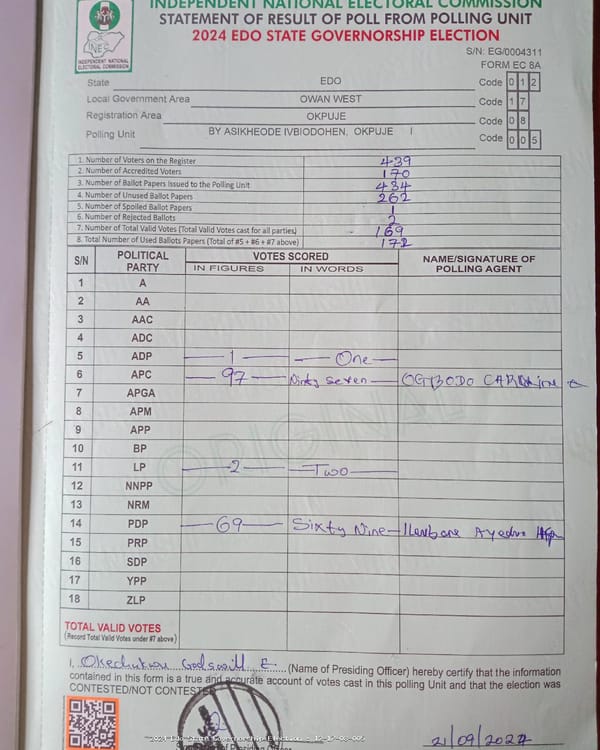 INDEPENDENT NATIONAL ELECTORAL COMMISSION
STATEMENT OF RESULT OF POLL FROM POLLING UNIT
2024 EDO STATE GOVERNORSHIP ELECTION
INEC
INDEPENDENT NATIONAL
ELECTORAL COMMISSION
S/N: EG/0004311
FORM EC 8A
State EDO Code 0 1 2
Local Government Area OWAN WEST Code 1 7
Registration Area OKPUJE Code 0 8
Polling Unit BY ASIKHEODE IVBIODOHEN, OKPUJE I Code 0 0 5
1. Number of Voters on the Register 439
2. Number of Accredited Voters 170
3. Number of Ballot Papers Issued to the Polling Unit 434
4. Number of Unused Ballot Papers 262
5. Number of Spoiled Ballot Papers 1
6. Number of Rejected Ballots 2
7. Number of Total Valid Votes (Total Valid Votes cast for all parties) 169
8. Total Number of Used Ballots Papers (Total of #5 + #6 + #7 above) 172
S/N POLITICAL PARTY VOTES SCORED NAME/SIGNATURE OF POLLING AGENT
IN FIGURES IN WORDS
1 A
2 AA
3 AAC
4 ADC
5 ADP 1 One
6 APC 97 Ninty Seven OGBODO
7 APGA
8 APM
9 APP
10 BP
11 LP 2 Two
12 NNPP
13 NRM
14 PDP 69 Sixty Nine
15 PRP
16 SDP
17 YPP
18 ZLP
ORIGINAL
TOTAL VALID VOTES
(Record Total Valid Votes under #7 above)
I, Okechukwu Godswill E. (Name of Presiding Officer) hereby certify that the information
contained in this form is a true and accurate account of votes cast in this polling Unit and that the election was
CONTESTED/NOT CONTESTED
2024 Edo State Governorship Election - 12-17-08-005
21/09/2024